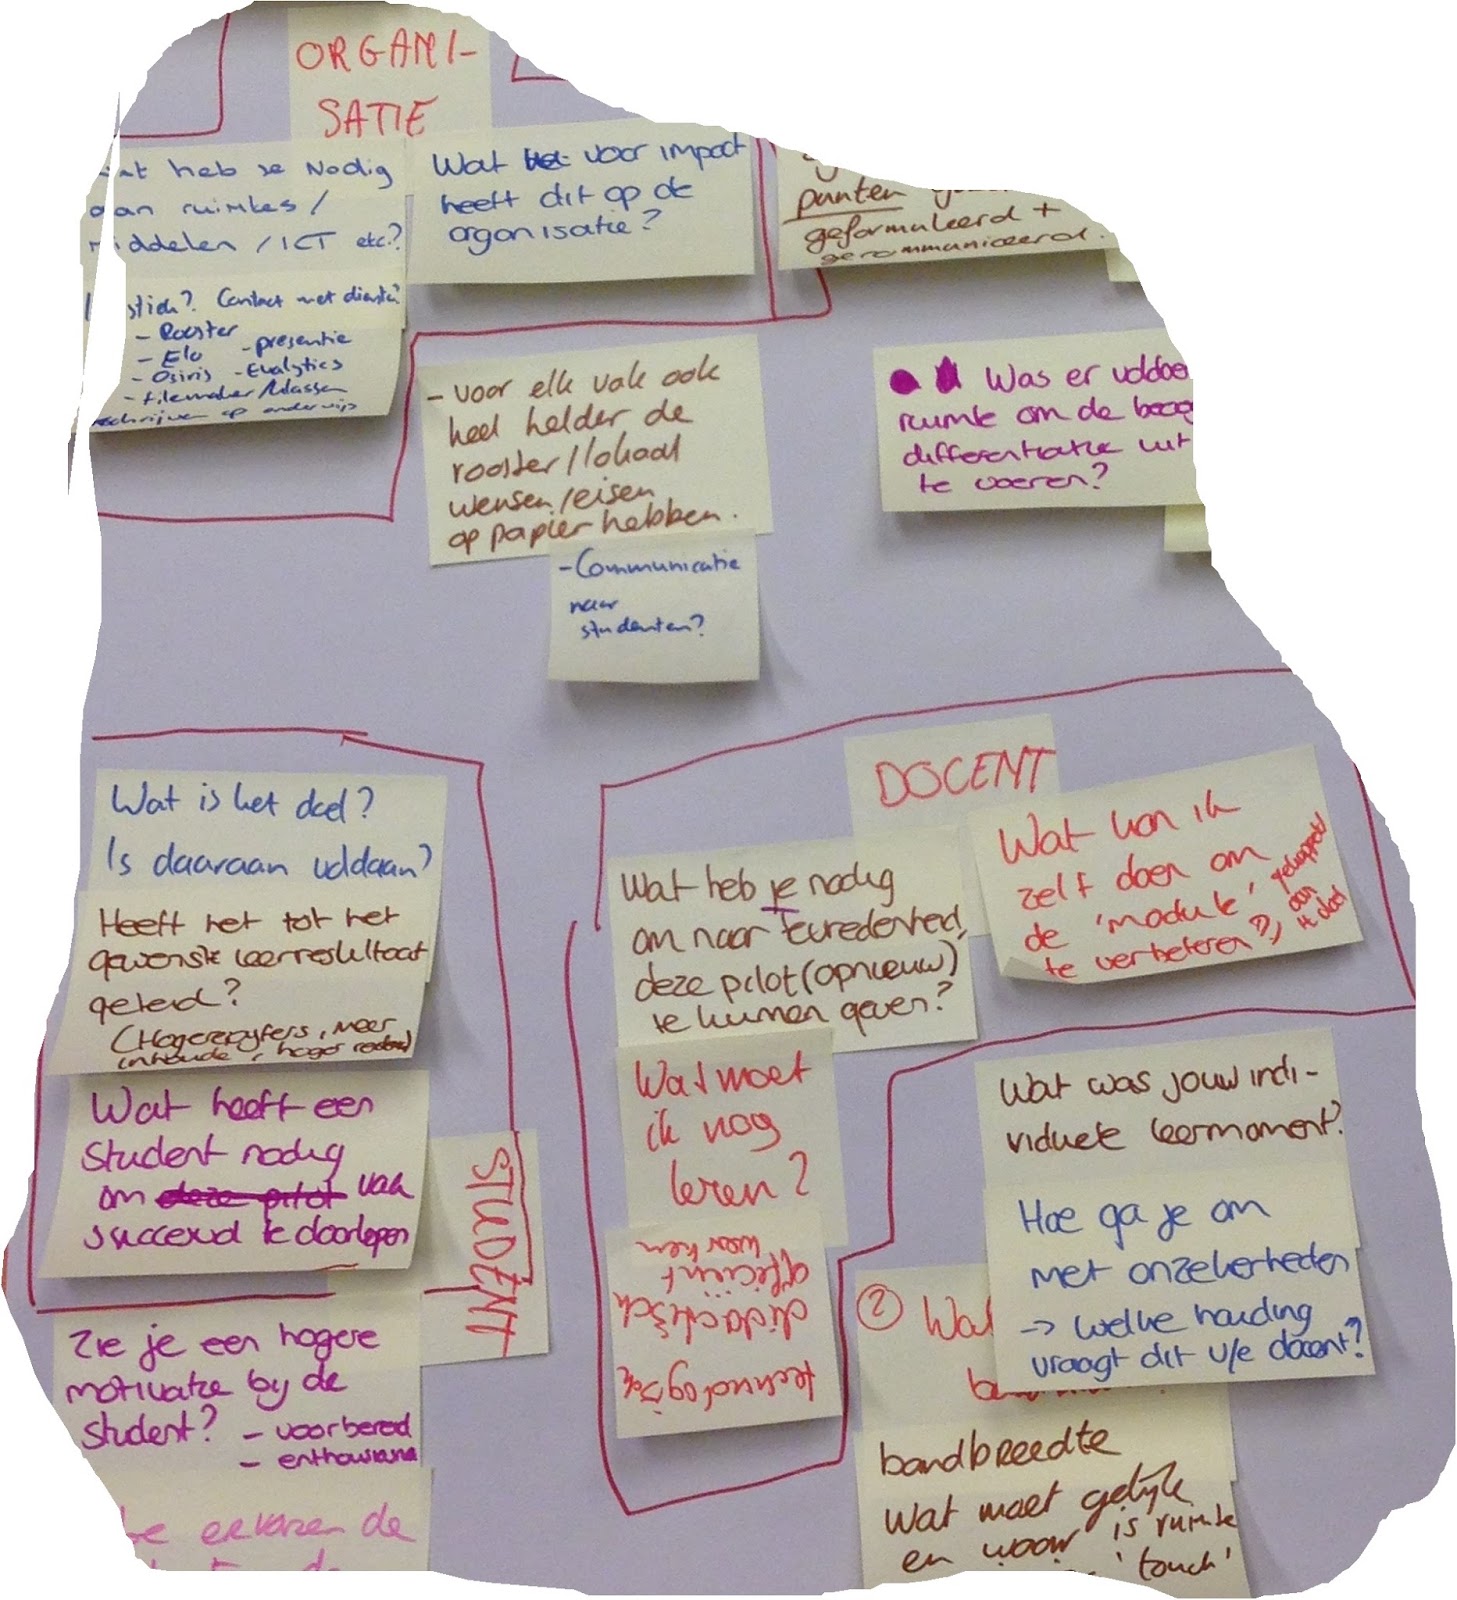 ORGANI-
SATIE
heb je Nodig
aan ruimtes /
middelen / ICT etc.?
Contact met
- Rooster
- Elo
- Osiris
- presentie
- Evalytics
- Filemaker/klassen
op onderwijs
Wat voor impact
heeft dit op de
organisatie?
punten
geformuleerd +
gecommuniceerd.
- voor elk vak ook
heel helder de
rooster/lokaal
wensen/eisen
op papier hebben.
- Communicatie
naar
studenten?
Was er voldoe
ruimte om de beoog
differentiatie uit
te voeren?
Wat is het doel?
Is daaraan voldaan?
Heeft het tot het
gewenste leerresultaat
geleid?
(Hogere cijfers, meer
inhoude, hoger
Wat heeft een
student nodig
om deze pilot vak
succesvol te doorlopen
STUDENT
Zie je een hogere
motivatie bij de
student? - voorbereid
- enthousias
ervaren de
DOCENT
Wat heb je nodig
om naar tevredenheid
deze pilot (opnieuw)
te kunnen geven?
Wat kan ik
zelf doen om
de 'module'
te verbeteren?
gekoppeld
aan
doel
Wat moet
ik nog
leren?
technologisch
didactisch
efficiënt
werken
Wat was jouw indi-
viduele leermoment?
Hoe ga je om
met onzekerheden
-> welke houding
vraagt dit v/e docent?
? Wat
bandbreedte
Wat moet gelijk
en waar is ruimte
'touch'